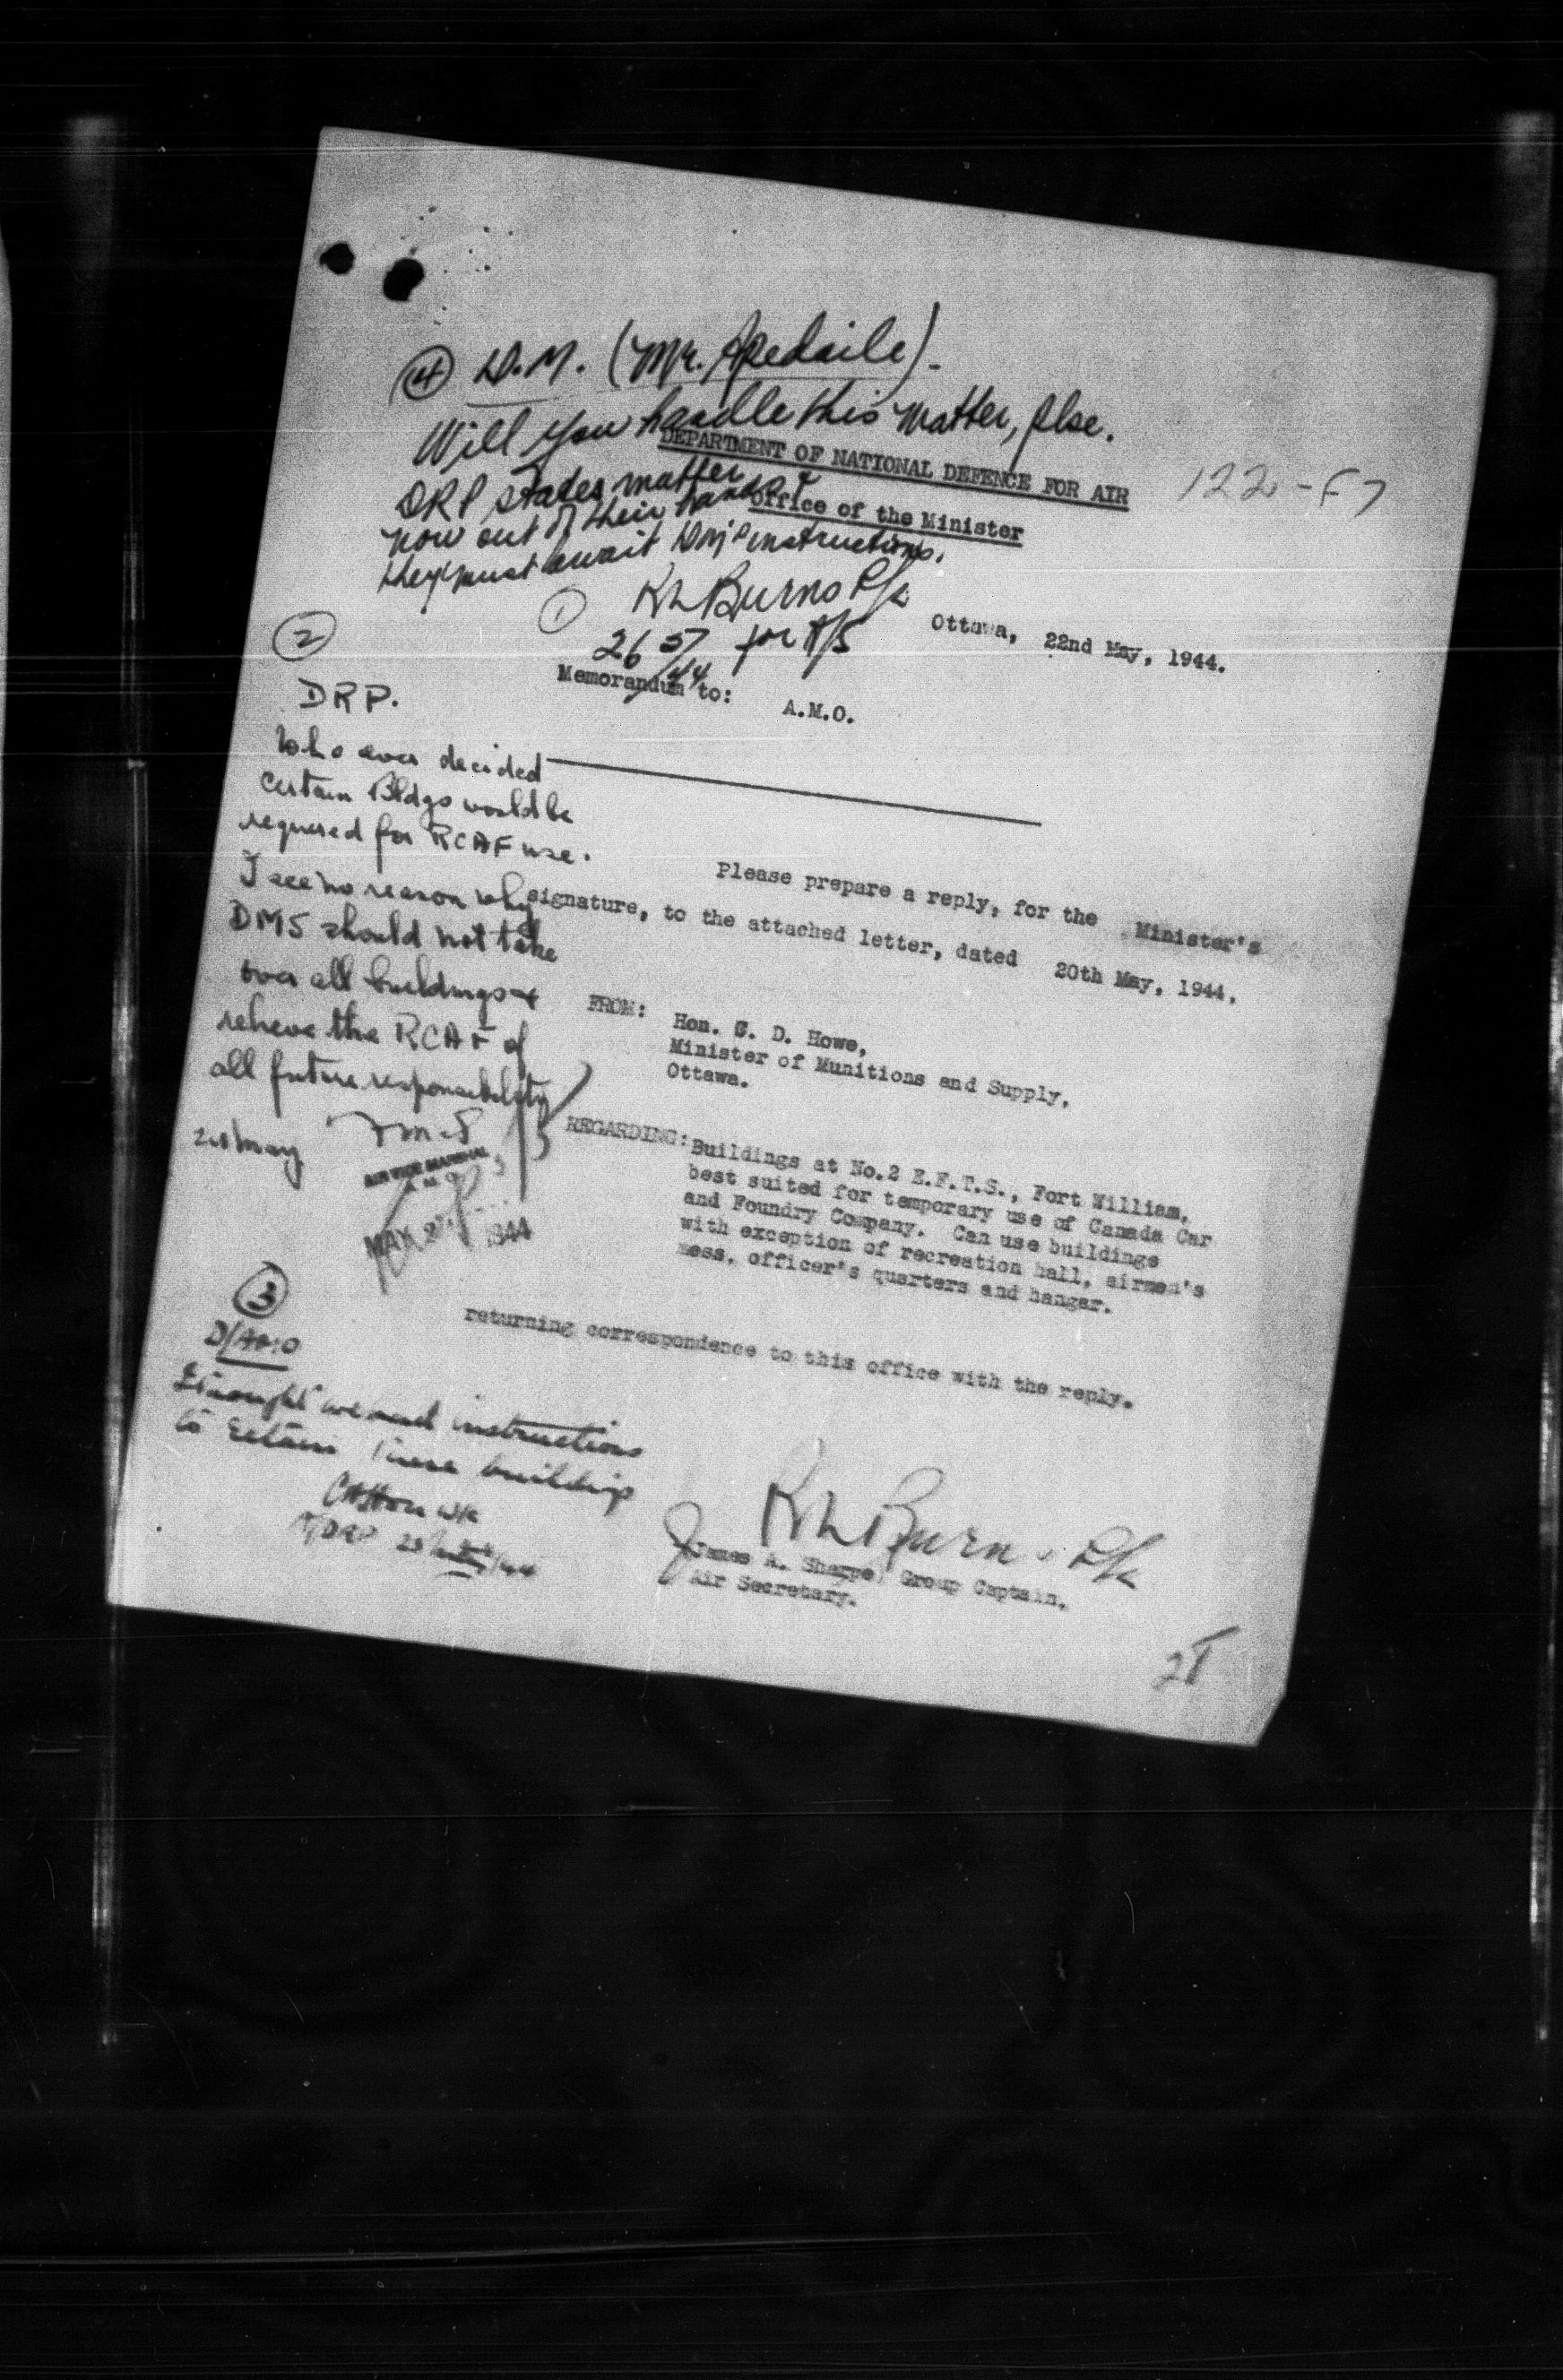 ④ D.M. (Mr. Apedaile).
Will you handle this matter, plse.
DRP states matter
now out of their hands &
they must await DM's instructions.
KLBurns F/L
26/5/44 for A/S
DEPARTMENT OF NATIONAL DEFENCE FOR AIR
Office of the Minister
122-F7
①
Ottawa, 22nd May, 1944.
Memorandum to: A.M.O.
②
DRP.
Who ever decided
certain Bldgs would be
required for RCAF use.
I see no reason why
DMS should not take
over all buildings &
relieve the RCAF of
all future responsibility
May
AIR VICE MARSHAL
MAY 1944
Please prepare a reply, for the Minister's
signature, to the attached letter, dated 20th May, 1944,
FROM: Hon. C. D. Howe,
Minister of Munitions and Supply,
Ottawa.
REGARDING: Buildings at No.2 E.F.T.S., Fort William,
best suited for temporary use of Canada Car
and Foundry Company. Can use buildings
with exception of recreation hall, airmen's
mess, officer's quarters and hangar.
returning correspondence to this office with the reply.
③
I thought we had instructions
to retain these buildings
KLBurns F/L
James A. Sharpe, Group Captain,
Air Secretary.